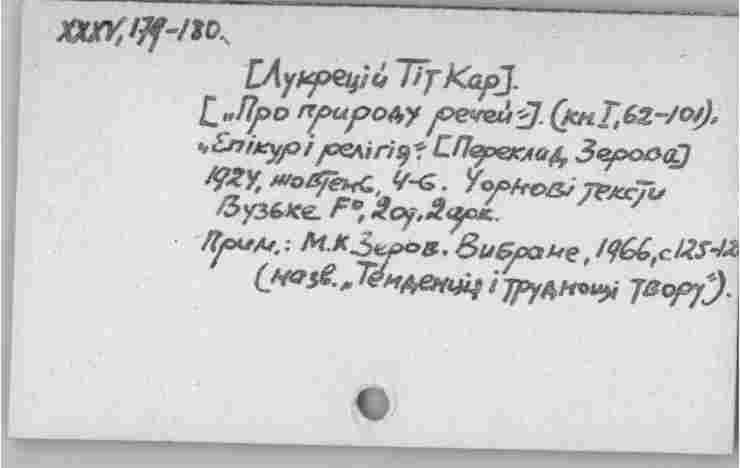 XXXV, 179-180.
[Лукрецій Тіт Кар].
[„Про природу речей“]. (кн I, 62-101).
„Епікур і релігія“. [Переклад Зерова]
1924, жовтень, 4-6. Чорнові тексти
Вузьке F°, 2од. 2арк.
Прим.: М.К.Зеров. Вибране, 1966, с.125-12
(назв. „Тенденція і труднощі твору“).